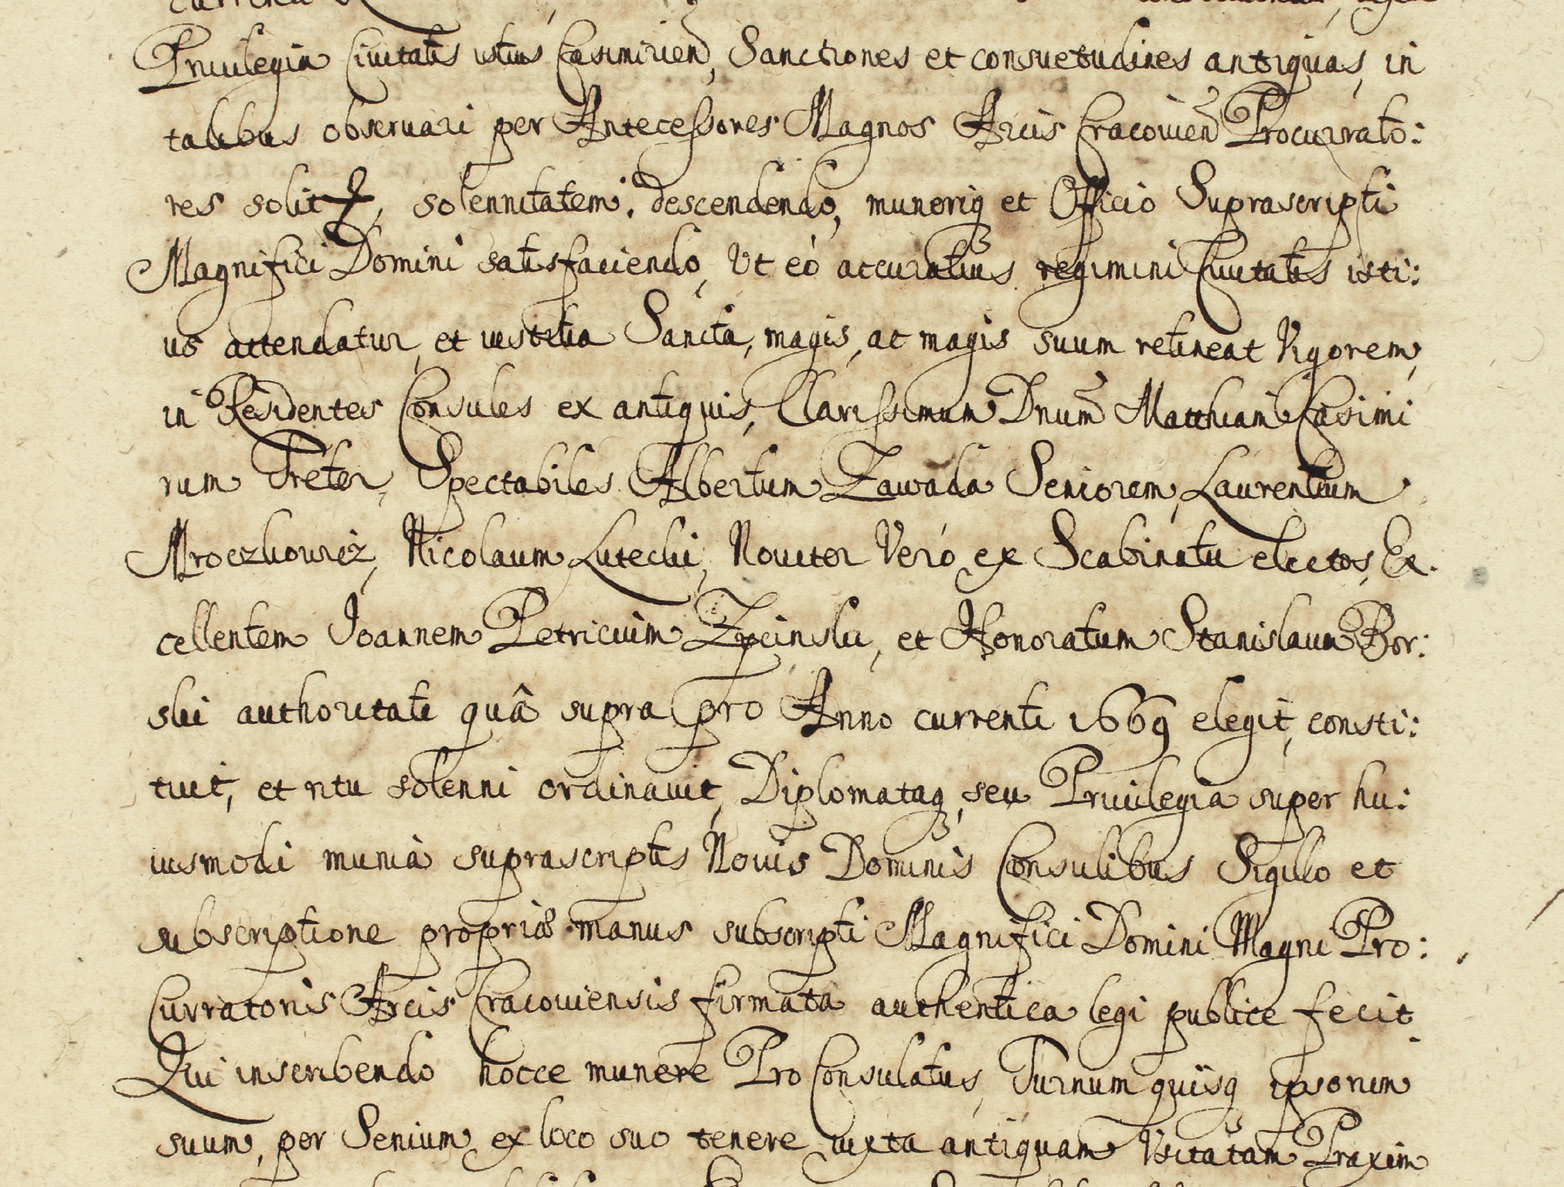 Priuilegia Ciuitatis istius Casimirien, Sanctiones et consuetudines antiquas, in
talibus obseruari per Antecessores Magnos Arcis Cracouien Procurrato:
res solit, solennitatem, descendendo, muneriq et Officio Suprascripti
Magnifici Domini satisfaciendo, Vt eò accuratius regimini Ciuitatis isti:
us attendatur, et iustitia Sancta, magis, ac magis suum retineat Vigorem,
in Residentes Consules ex antiquis, Clarissimum Dnum Matthiam Casimi
rum Treter, Spectabiles Albertum Zawada Seniorem, Laurentium
Mroczkowicz, Nicolaum Lutecki, Nouiter Verò ex Scabinatu electos, Ex:
cellentem Joannem Petricium Zpcinski, et Honoratum Stanislaum Bor:
ski authoritate quâ supra pro Anno currenti 1669 elegit, consti:
tuit, et ritu solenni ordinauit, Diplomataq, seu Priuilegia super hu:
iusmodi munia suprascriptis Nouis Dominis Consulibus Sigillo et
subscriptione propriæ manus subscripti Magnifici Domini Magni Pro:
Curratoris Arcis Cracouiensis firmata authentica legi publice fecit
Qui inscribendo hocce munere Pro Consulatus, Turnum quisq ipsorum
suum, per Senium, ex loco suo tenere iuxta antiquam Vsitatam Praxim